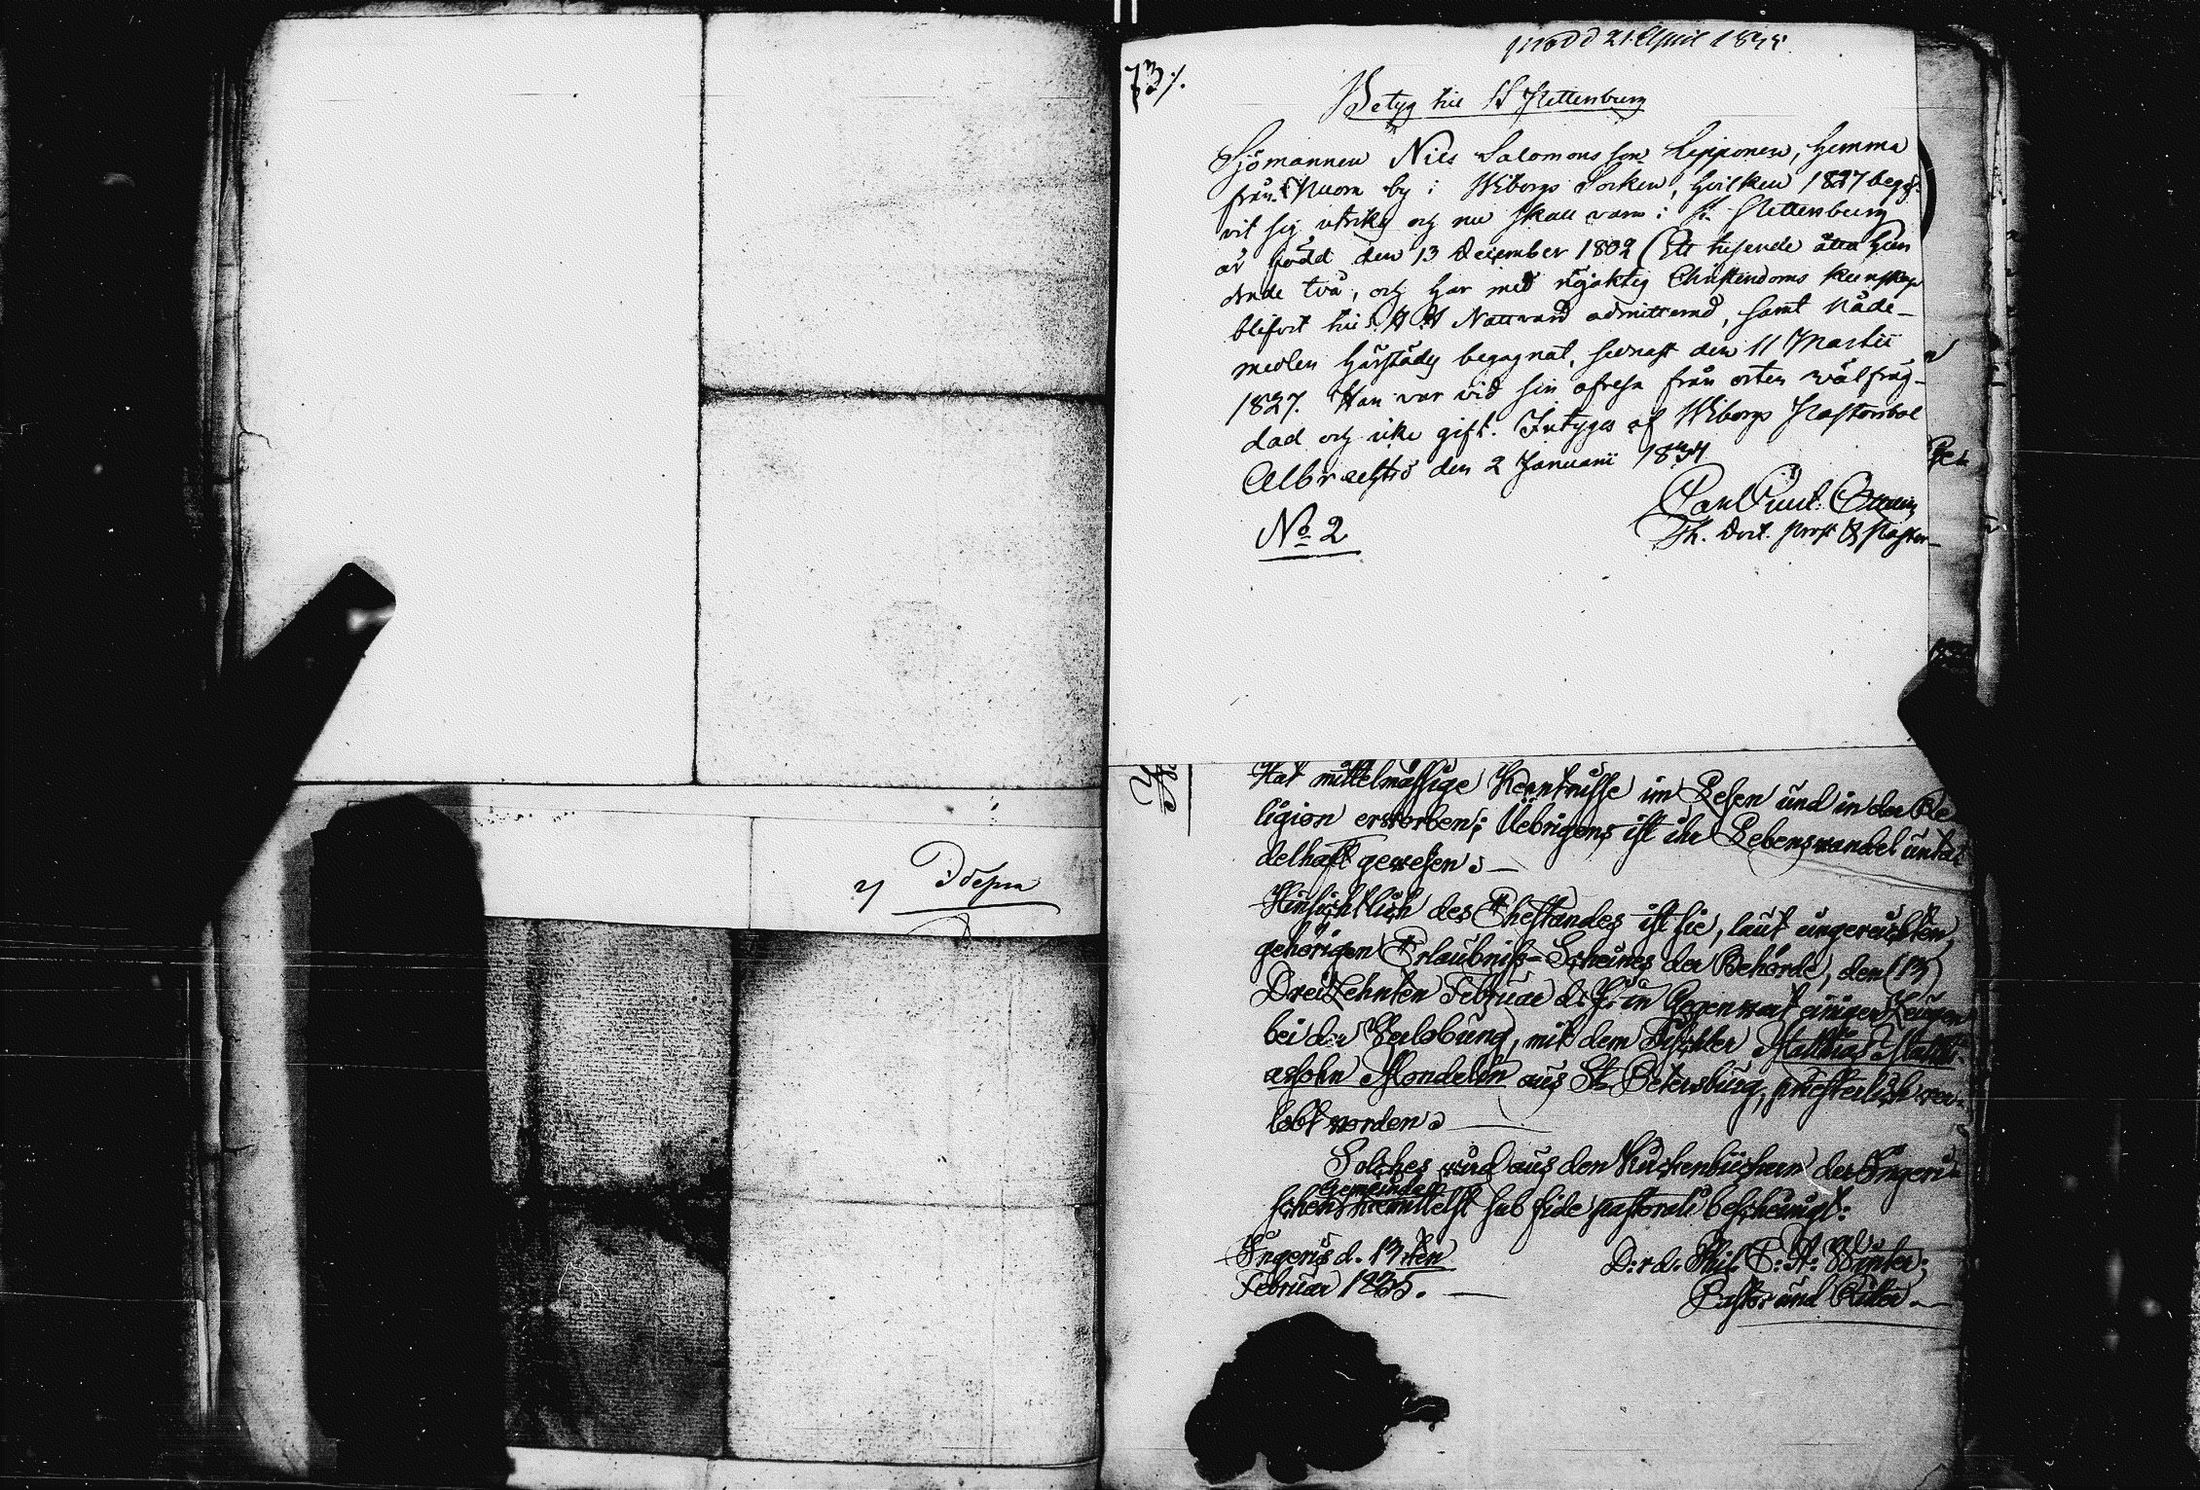 21 April 1835
73 ⁒
Betyg till St Pettersburg
Sjömannen Nils Salomonsson Lipponen, hemma
från Nuora by i Wiborgs Socken, hvilken 1827 begif-
vit sig utrikes och nu skall vara i St. Pettersburg
är född den 13 December 1802 (Ett tusende åtta hun
drade två, och har med nöjaktig Christendoms kunskap
blifvit till H H Nattvard admitterad, samt Nåde-
medlen härstädes begagnat, sednast den 11 Martii
1827. Han var vid sin afresa från orten välfräg-
dad och icke gift. Intygas af Wiborgs Pastorsbol
Albrechtsro den 2 Januarii 1834
Th. Doct. Prost & Pastor
No 2
Hat mittelmässige Kenntnisse im Lesen und in der Re
ligion erworben; Uebrigens ist ihr Lebenswandel unta
delhaft gewesen. —
Hinsichtlich des Ehestandes ist sie, laut eingereichten,
gehörigen Erlaubniss-Scheines der Behörde, den (13)
Dreizehnten Februar d. J. in Gegenwart einiger Zeugen
bei der Verlobung, mit dem Tischler Matthias Matthi-
assohn Mondelin aus St. Petersburg, priesterlich ver-
lobt worden. —
Solches wird aus den Kirchenbüchern der Ingeris-
Gemeinde
schen hiemittelst sub fide pastorali bescheinigt:
Ingeris d. 13ten
Februar 1835. —
D:r d. Phil. E: H: Winter,
Pastor und Ritter. —